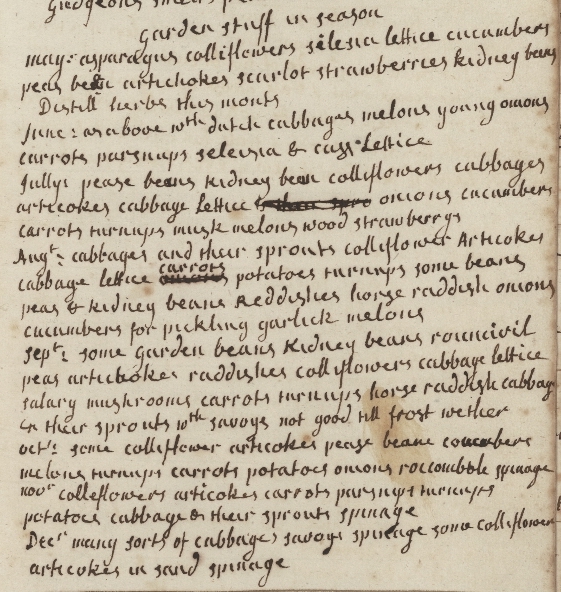 Gudgeons
garden stuff in season
may: asparagus colliflowers silesia lettice cucumbers
peas bean artichokes scarlot strawberries kidney beans
Distill herbs this month
June: as above wth dutch cabbages melons young onions
carrots parsnups selensia & cass Lettice
Jully: pease beans kidney bean colliflowers cabbages
articokes cabbage lettice onions cucumbers
carrots turnups musk melons wood strawberrys
Augt: cabbages and their sprouts colliflower Articokes
cabbage lettice carrots potatoes turnups some beans
peas & kidney beans Reddishes horse raddish onions
cucumbers for pickling garlick melons
sept: some garden beans kidney beans rouncivil
peas artichokes raddishes colliflowers cabbage lettice
salary mushrooms carrots turnups horse raddish cabbage
& their sprouts wth savoys not good till frost wether
octr: some colliflower articokes pease beane coucumbers
melons turnups carrots potatoes onions roccombole spinage
novr colleflowers articokes carrots parsnups turnups
potatoes cabbage & their sprouts spinage
Decr many sorts of cabbages savoys spinage some colliflower
articokes in sand spinage